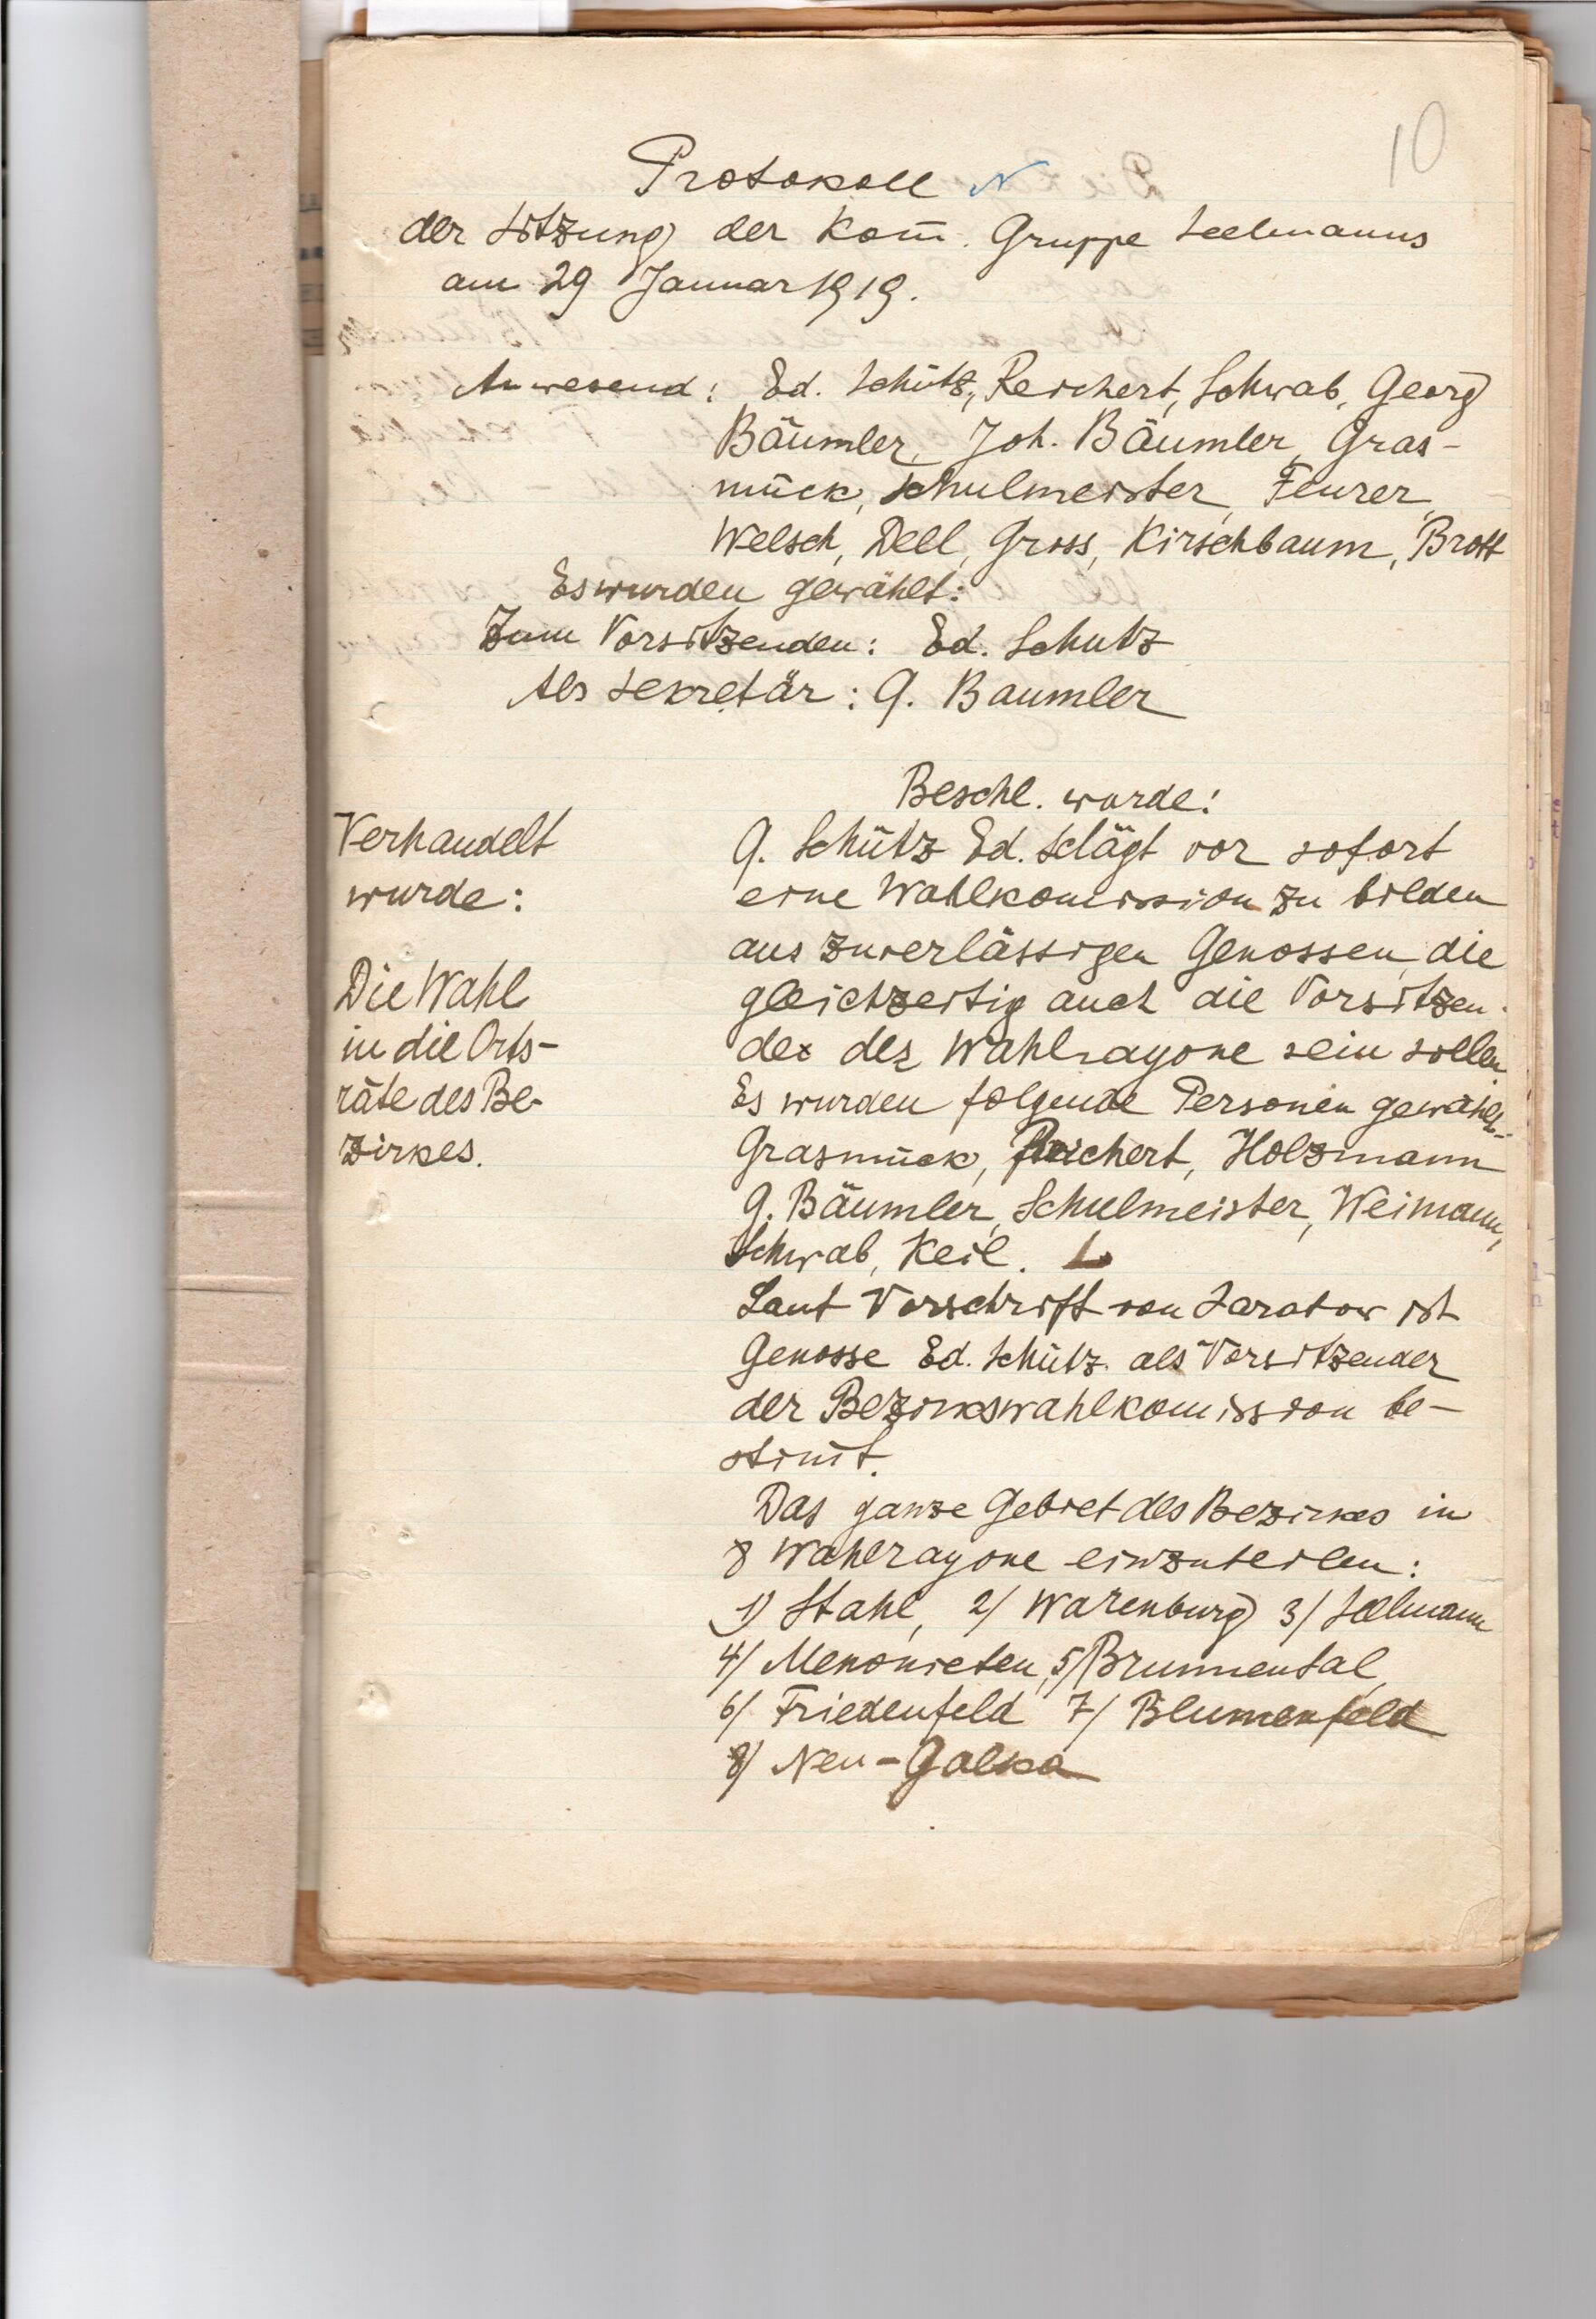 10
Protokoll N
der Sitzung der Kom̅. Gruppe Seelmanns
am 29 Januar 1919.
Anwesend: Ed. Schütz, Reichert, Schwab, Georg
Bäumler, Joh. Bäumler, Gras-
mück, Schulmeister, Feurer,
Welsch, Dell, Gross, Kirschbaum, Brott
Es wurden gewählt:
Zum Vorsitzenden: Ed. Schutz
Als Sekretär: G. Baumler
Beschl. wurde:
Verhandelt
wurde:
Die Wahl
in die Orts-
räte des Be-
zirkes.
G. Schütz Ed. schlägt vor sofort
eine Wahlkom̅ission zu bilden
aus zuverlässigen Genossen, die
gleichzeitig auch die Vorsitzen-
de der Wahlrayone sein sollen
Es wurden folgende Personen gewählt:
Grasmück, Reichert, Holzmann
G. Bäumler, Schulmeister, Weimann,
Schwab, Keil.
Laut Vorschrift von Saratow ist
Genosse Ed. Schütz als Vorsitzender
der Bezirkswahlkom̅ission be-
stim̅t.
Das ganze Gebiet des Bezirkes in
8 Wahlrayone einzuteilen:
1) Stahl, 2/ Warenburg 3/ Seelmann
4/ Menoniten, 5/ Brunnental,
6/ Friedenfeld 7/ Blumenfeld
8/ Neu-Galka